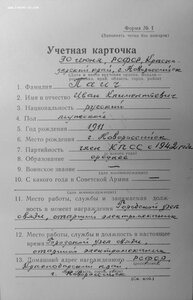 Форма № 1
(Заполнять четко без помарок)
Учетная карточка
30 июня, РСФСР, Красно-
дарский край, г. Новороссийск
1. Фамилия Паич
2. Имя и отчество Иван Климентьевич
3. Национальность русский
4. Пол мужской
5. Год рождения 1911
6. Место рождения г. Новороссийск
7. Партийность член КПСС с 1942 года
8. Образование среднее
9. Воинское звание —
10. С какого года в Советской Армии —
11. Место работы, службы и занимаемая
должность в момент награждения Городской узел
связи, старший электромеханик
12. Место работы, службы и должность в настоящее
время Городской узел связи,
старший электромеханик
13. Домашний адрес награжденного РСФСР,
Краснодарский край,
г. Новороссийск